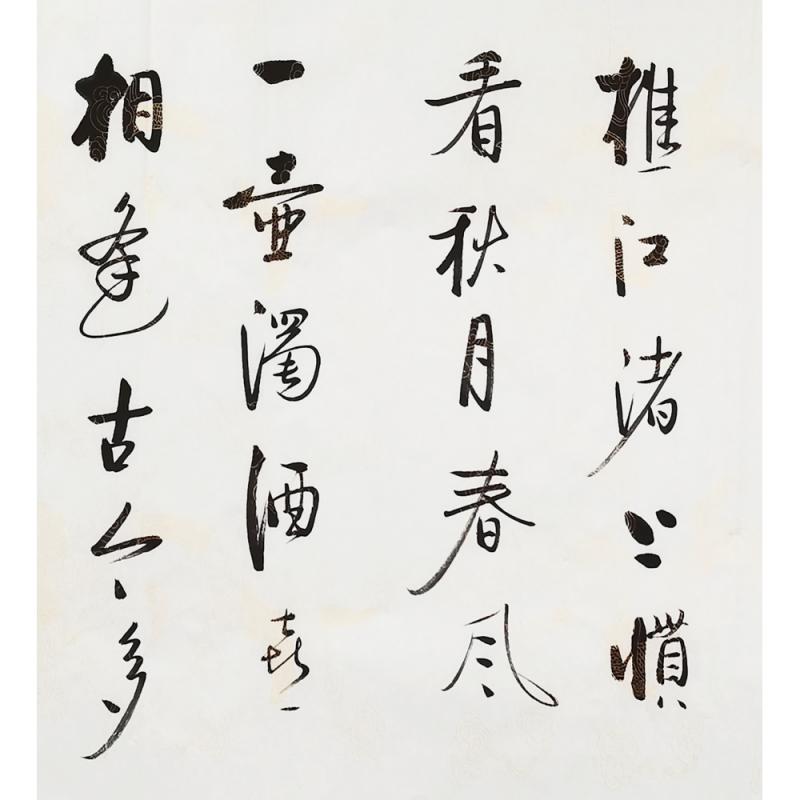 樵江渚上慣
看秋月春风
一壶濁酒喜
相逢古今多